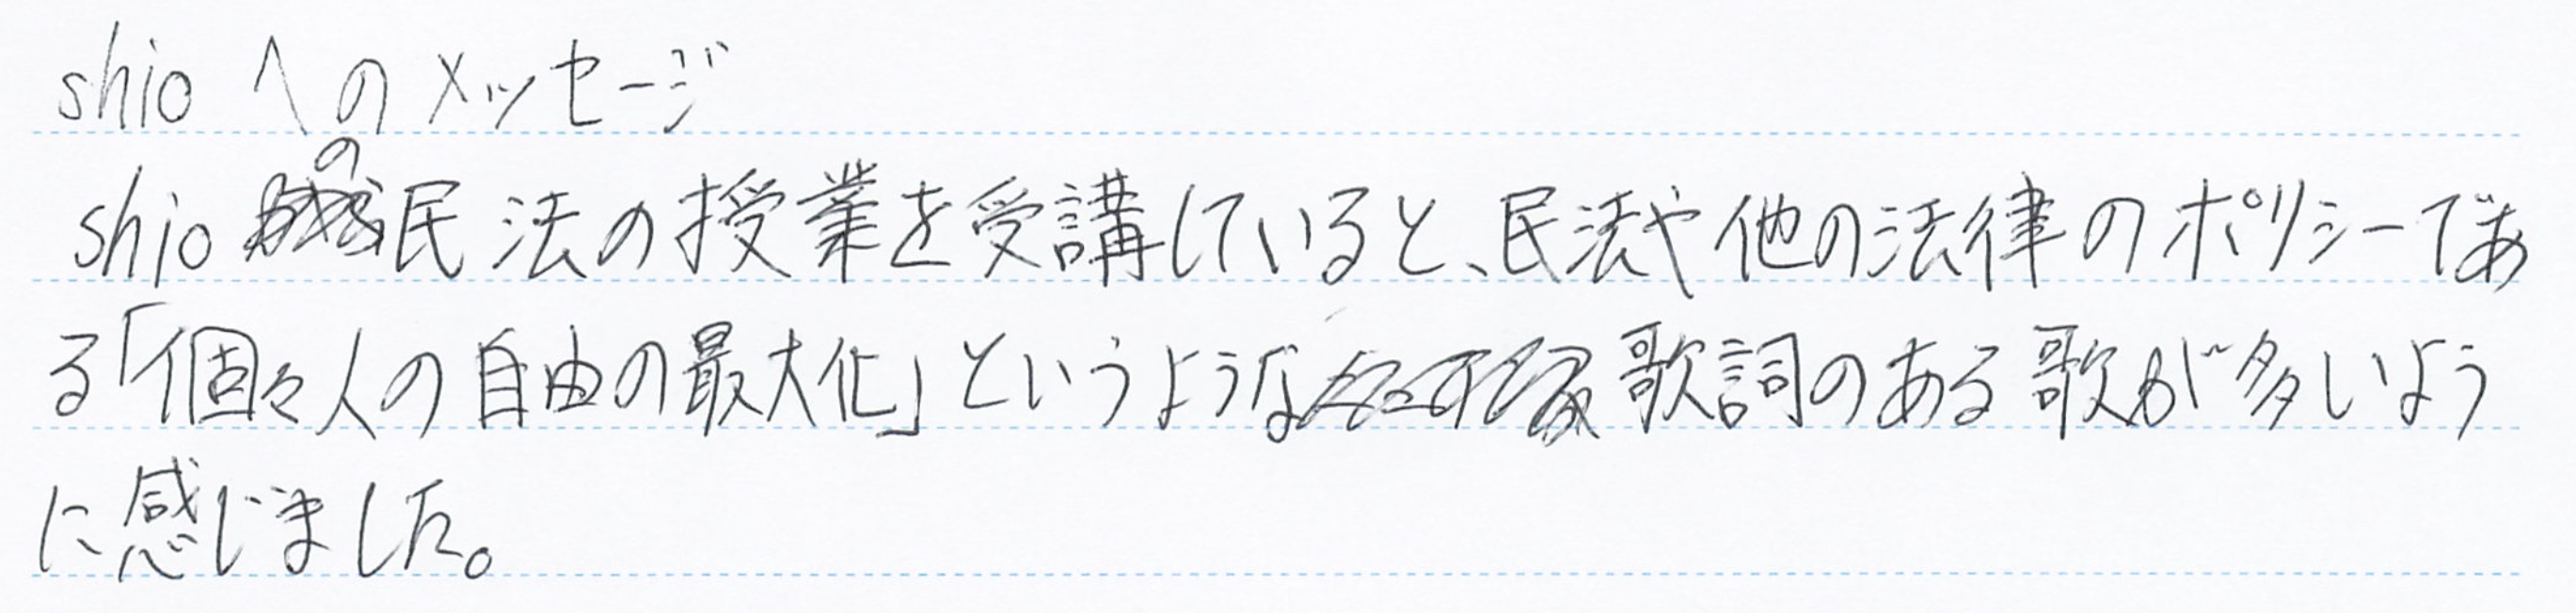 shioへのメッセージ
shioの民法の授業を受講していると、民法や他の法律のポリシーであ
る「個々人の自由の最大化」というような歌詞のある歌が多いよう
に感じました。